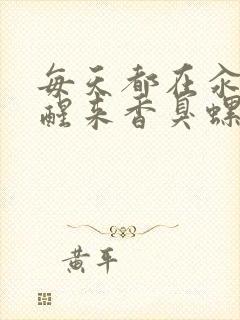 每天都在汆
醒来香臭螺
黄平